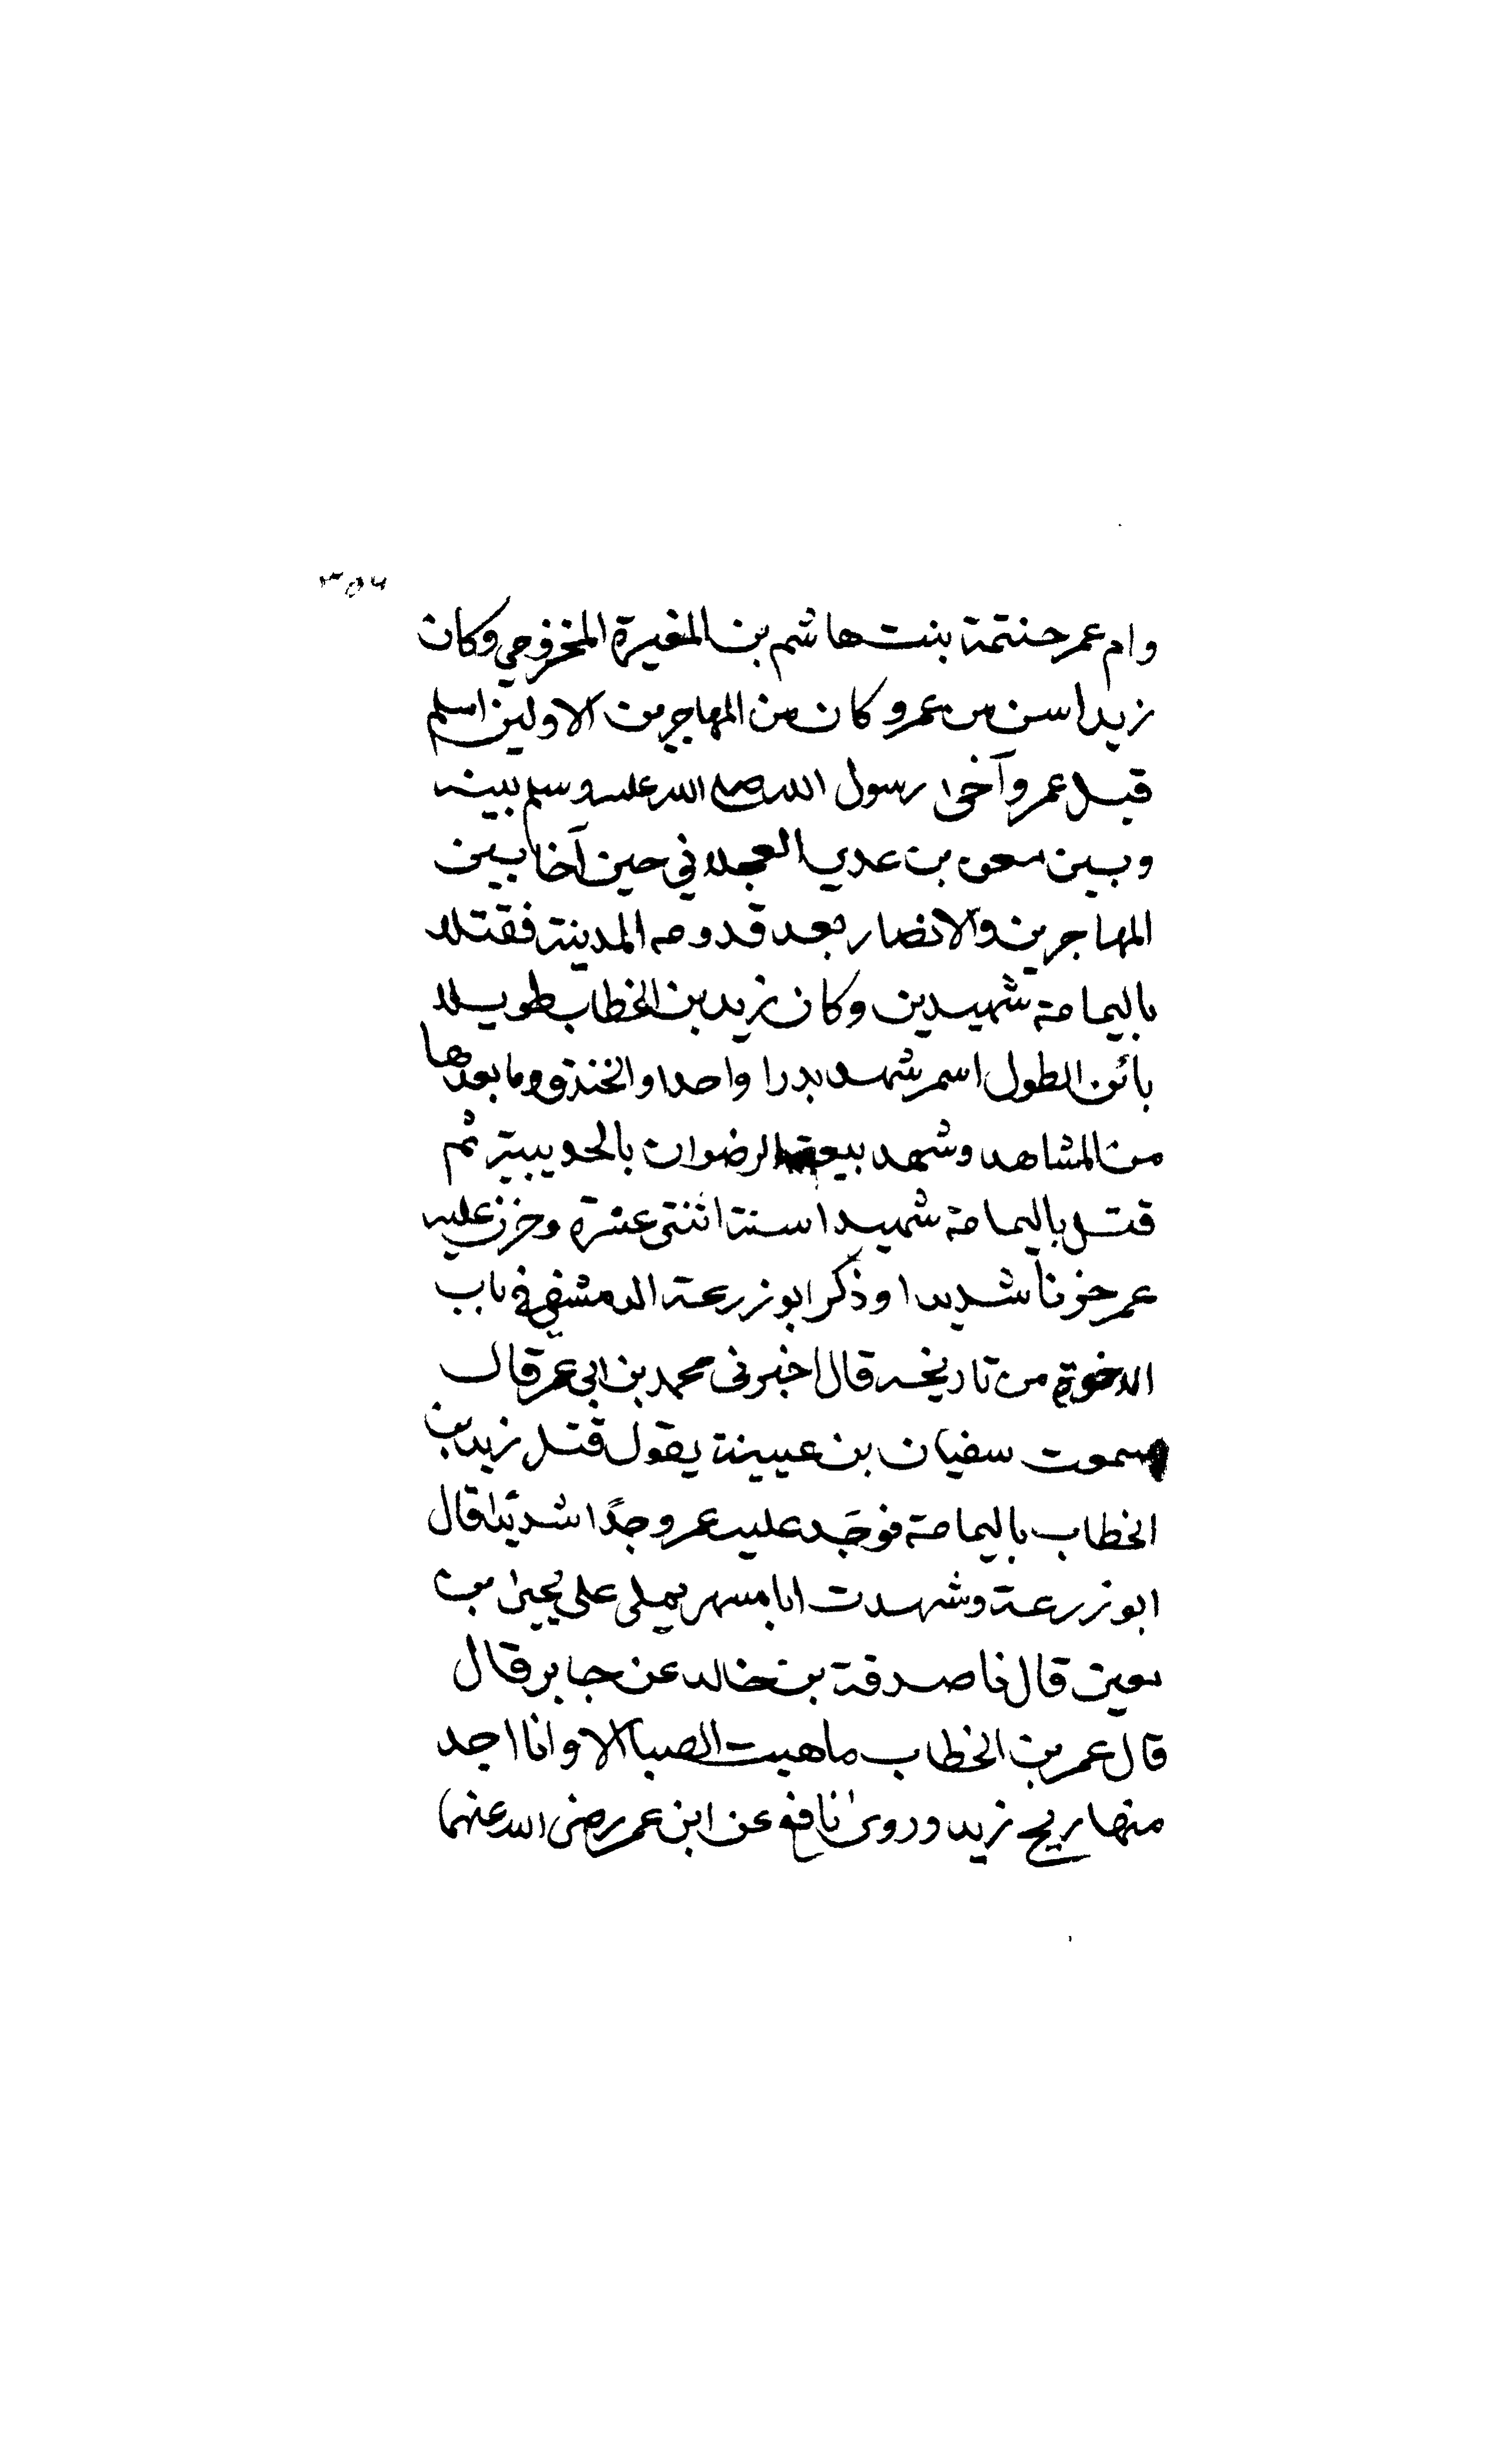 ٣٥٦
وام عمر حنتمة بنت هاشم بن المغيرة المخزومي وكان
زيد اسن من عمر وكان من المهاجرين الاولين اسلم
قبل عمر وآخى رسول الله صلى الله عليه وسلم بينه
وبين معن بن عدي العجلاني حين آخا بين
المهاجرين والانصار بعد قدومه المدينة فقتلا
باليمامة شهيدين وكان زيد بن الخطاب طويلا
بائن الطول اسمر شهد بدرا واحدا والخندق وما بعدها
من المشاهد وشهد بيعة الرضوان بالحديبية ثم
قتل باليمامة شهيدا سنة اثنتى عشرة وحزن عليه
عمر حزناً شديدا وذكر ابو زرعة الدمشقي في باب
الاخوة من تاريخه قال اخبرنى محمد بن ابي عمر قال
سمعت سفيان بن عيينة يقول قتل زيد بن
الخطاب باليمامة فوجَد عليه عمر وجدًا شديدًا قال
ابو زرعة وشهدت ابا مسهر يملى على يحيى بن
معين قال نا صدقة بن خالد عن جابر قال
قال عمر بن الخطاب ما هبت الصبا الا وانا اجد
منها ريح زيد وروى نافع عن ابن عمر رضى الله عنهما